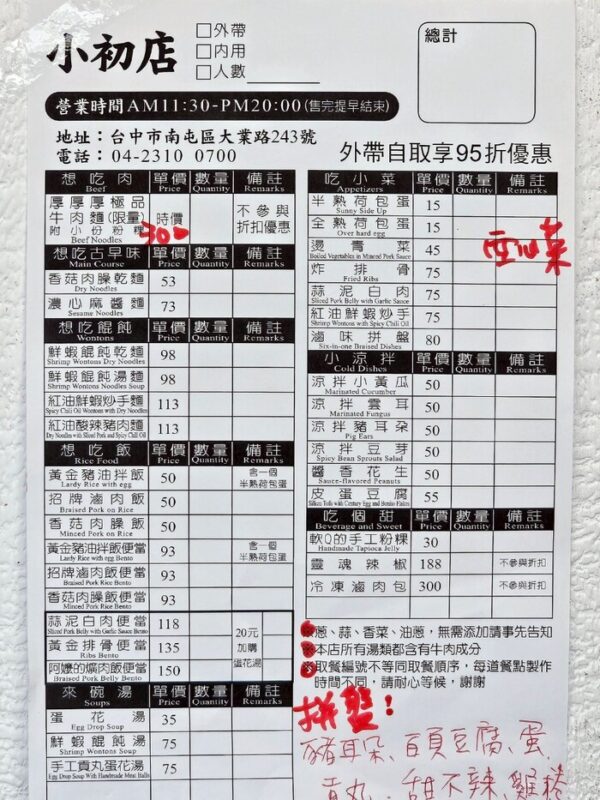 小初店
□外帶
□內用
□人數
總計
營業時間AM11:30-PM20:00(售完提早結束)
地址：台中市南屯區大業路243號
電話：04-2310 0700
外帶自取享95折優惠
想吃肉 Beef 單價 Price 數量 Quantity 備註 Remarks
厚厚厚極品
牛肉麵(限量) 時價 不參與折扣優惠
附小份粉粿 300
Beef Noodles
想吃古早味 Main Course 單價 Price 數量 Quantity 備註 Remarks
香菇肉臊乾麵 Dry Noodles 53
濃心麻醬麵 Sesame Noodles 73
想吃餛飩 Wontons 單價 Price 數量 Quantity 備註 Remarks
鮮蝦餛飩乾麵 Shrimp Wontons Dry Noodles 98
鮮蝦餛飩湯麵 Shrimp Wontons Noodles Soup 98
紅油鮮蝦抄手麵 Spicy Chili Oil Wontons with Dry Noodles 113
紅油酸辣豬肉麵 Dry Noodles with Sliced Pork and Spicy Chili Oil 113
想吃飯 Rice Food 單價 Price 數量 Quantity 備註 Remarks
黃金豬油拌飯 Lardy Rice with egg 50 含一個半熟荷包蛋
招牌滷肉飯 Braised Pork on Rice 50
香菇肉臊飯 Minced Pork Rice 50
黃金豬油拌飯便當 Lardy Rice with egg Bento 93 含一個半熟荷包蛋
招牌滷肉飯便當 Braised Pork Rice Bento 93
香菇肉臊飯便當 Minced Pork Rice Bento 93
蒜泥白肉便當 Sliced Pork Belly with Garlic Sauce Bento 118
黃金排骨便當 Ribs Bento 135
阿嬤的爌肉飯便當 Braised Pork Belly Bento 150
20元加購蛋花湯
來碗湯 Soups 單價 Price 數量 Quantity 備註 Remarks
蛋花湯 Egg Drop Soup 35
鮮蝦餛飩湯 Shrimp Wontons Soup 75
手工貢丸蛋花湯 Egg Drop Soup With Handmade Meat Balls 75
吃小菜 Appetizers 單價 Price 數量 Quantity 備註 Remarks
半熟荷包蛋 Sunny Side Up 15
全熟荷包蛋 Over hard egg 15
燙青菜 Boiled Vegetables in Minced Pork Sauce 45
炸排骨 Fried Ribs 75
蒜泥白肉 Sliced Pork Belly with Garlic Sauce 75
紅油鮮蝦抄手 Shrimp Wontons with Spicy Chili Oil 75
滷味拼盤 Six-in-one Braised Dishes 80
小涼拌 Cold Dishes 單價 Price 數量 Quantity 備註 Remarks
涼拌小黃瓜 Marinated Cucumber 50
涼拌雲耳 Marinated Fungus 50
涼拌豬耳朵 Pig Ears 50
涼拌豆芽 Spicy Bean Sprouts Salad 50
醬香花生 Sauce-flavored Peanuts 50
皮蛋豆腐 Silken Tofu with Century Egg and Bonito Flakes 55
吃個甜 Beverage and Sweet 單價 Price 數量 Quantity 備註 Remarks
軟Q的手工粉粿 Handmade Tapioca Jelly 30
靈魂辣椒 188 不參與折扣
冷凍滷肉包 300 不參與折扣
※蔥、蒜、香菜、油蔥，無需添加請事先告知
※本店所有湯類都含有牛肉成分
※取餐編號不等同取餐順序，每道餐點製作
時間不同，請耐心等候，謝謝
拼盤！
豬耳朵、百頁豆腐、蛋、
貢丸、甜不辣、雞捲